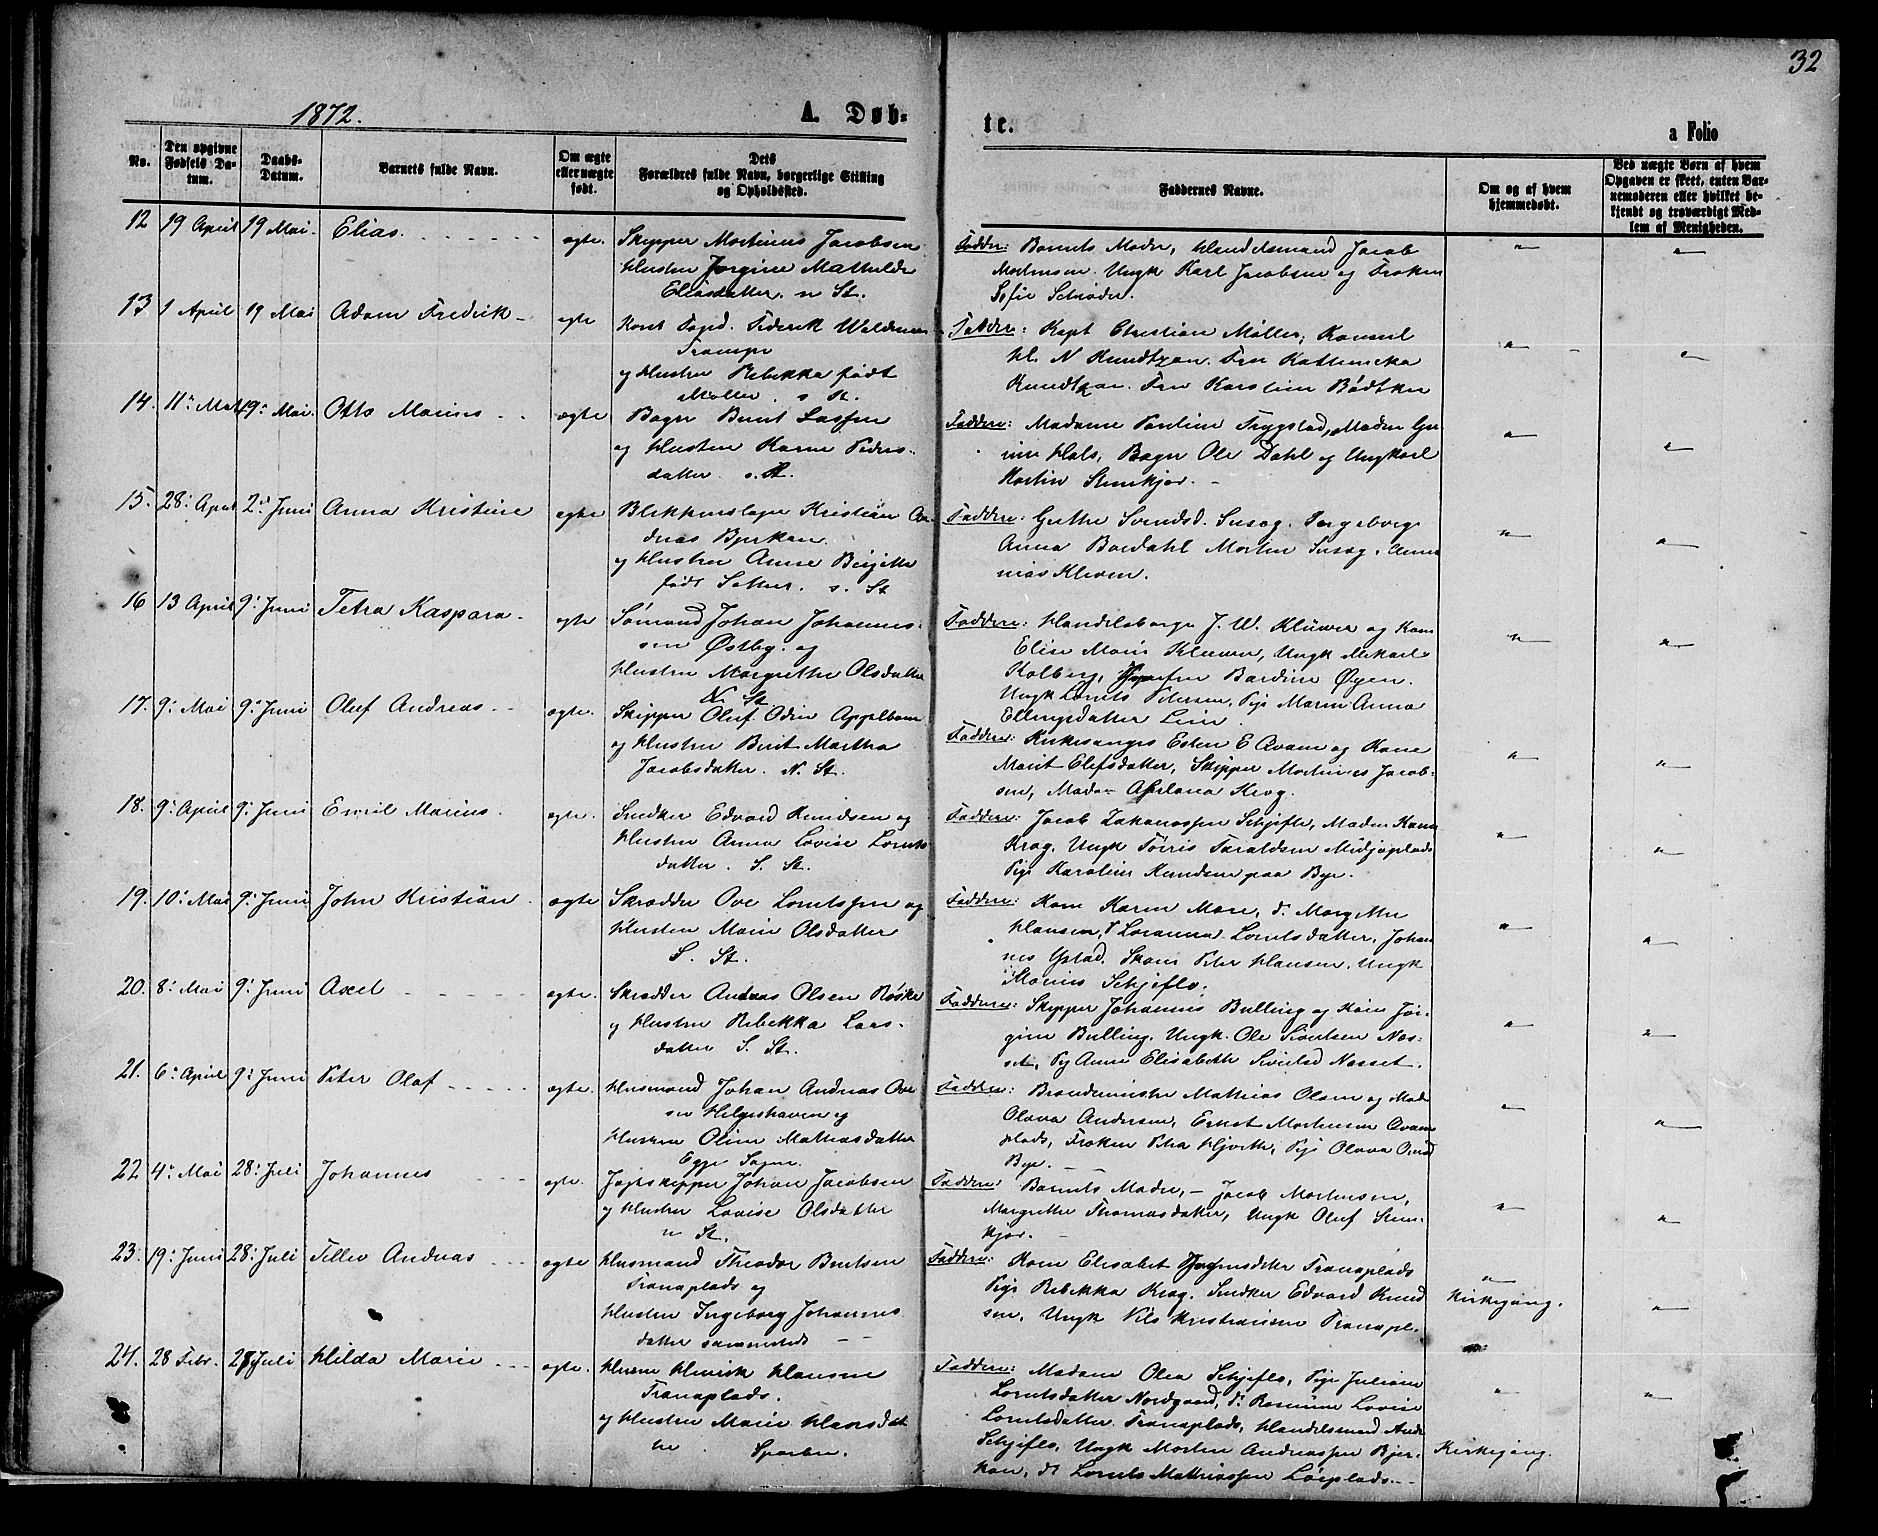 32
1872.
A. Døb-
te.
a Folio
No.
Den opgivne Fødsels Da-
tum.
Daabs-
Datum.
Barnets fulde Navn.
Om ægte
eller uægte
født.
Dets
Forældres fulde Navn, borgerlige Stilling
og Opholdssted.
Faddernes Navne.
Om og af hvem
hjemmedøbt.
Ved uægte Børn af hvem
Opgaven er skeet, enten Bar-
nemoderen eller hvilket be-
kjendt og troværdigt Med-
lem af Menigheden.
12 19 April 19 Mai. Elias. ægte. Skipper Martinus Jacobsen
Hustru Jørgine Mathilde
Eliasdatter. n St.
Faddere: Barnets Moder, Handelsmand Jacob
Mortensen. Ungk Karl Jacobsen og Frøken
Sofie Schrøder.
13 1 April 19 Mai Adam Fredrik ægte
og Hustru Rebekka født
Møller. s St.
Faddere: Kapt Christian Møller, Konsul
Hl. N Kundtzon. Fru
Kundtzon. Fru Karoline Bødtker
14. 11te Mai 19de Mai. Otto Marius ægte Bager Bernt Lassen
og Hustru Karen Peders-
datter. s. St.
Faddere: Madame Pauline Trygstad, Madm
Hals, Bager Ole Dahl og Ungkarl
Martin Stenkjær.
15. 28. April 2. Juni Anna Kristine ægte Blikkenslager Kristian An-
dreas Bjerkan
og Hustru Anne Birgitte
født Setter. s. St
Faddere: Grethe Svendsd. Susag. Ingeborg
Anna Bardahl Morten Susag.
Kleven.
16 13 April 9. Juni Petra Kaspara ægte Sømand Johan Johannes-
sen Østby. og
Hustru Margrethe Olsdatter
N St
Faddere: Handelsborger J. W. Klüwer og Kone
Elise Marie Klüwer, Ungk Mikael
Kolberg, Jomfru Bardine Øyen.
Ungk Lorents Petersen, Pige Maren Anna
Ellingsdatter Lein.
17. 9. Mai 9. Juni Oluf Andreas ægte. Skipper Oluf Odin Appelbom
og Hustru Berit Martha
Jacobsdatter. N. St.
Faddere: Kirkesanger Esten E Avam og Kone
Marit Elefsdatter, Skipper Martinus Jacob-
sen, Madam Krog.
18. 9. April 9. Juni Emil Marius. ægte. Snedker Edvard Knudsen og
Hustru Anna Lovise Lorents
datter. S. St.
Faddere: Jacob Zakariassen Schjefte, Madm Hana
Krog, Ungk Taraldsen
Pige Karoline Knudsen paa Bye.
19. 10. Mai 9. Juni John Kristian ægte Skrædder Ove Lorentssen og
Hustru Marie Olsdatter
S. St.
Faddere: Kone Karen Moe, d. Margrethe
Hansen, Lorentsdatter, Johan
nes Gstad, Peter Hansen, Ungk
Marius Schjeflo.
20. 8. Mai 9. Juni Axel ægte. Skrædder Andreas Olsen Røske
og Hustru Rebekka Lars-
datter S. St.
Faddere: Skipper Johannes Bulling og Kone Jør-
gine Bulling, Ungk. Ole Sivertsen Næs-
set, Pig Anne Elisabeth Sivertsd Næsset.
21. 6. April 9. Juni Peter Olaf ægte. Husmand Johan Andreas Ove
sen Helgeshaven og
Hustru Oline Mathiasdatter
Egge Sogn.
Faddere: Brandmester Mathias Olsen og Mad
Olava Andersen, Ernst Mortensen Avam
plads, Frøken Petra Hjorth, Pige Olava
Bye.
22 4. Mai 28. Juli Johannes ægte. Jagtskipper Johan Jacobsen
og Hustru Lovise Olsdatter
n St.
Faddere: Barnets Moder, – Jacob Mortensen,
Margrethe Thomasdatter, Ungk Oluf Sten-
kjær.
23. 19. Juni 28. Juli Peller Andreas ægte Husmand Theodor Berntsen
Tranaplads og
Hustru Ingeborg Johannes
datter sammesteds
Faddere: Kone Elisabet Tranaplads
Pige Rebekka Krog. Snedker Edvard Knud
sen, Ungk Nils Kristiansen Tranapl.
Kirkegang.
24. 28 Febr. 28 Juli Hilda Marie ægte. Henrik Hansen
Tranaplads.
og Hustru Marie Hansdat
ter. Sparbu.
Faddere: Madam Olea Schjeflo, Pige Juliane
Lorntsdatter Nordgaard, d. Lovise
Lorntsdatter Tranaplads, Handelsmand Andr
Schjeflo, Ungk Morten Andreassen Bjer-
kan, d. Lornts Mathiassen
Kirkegang.